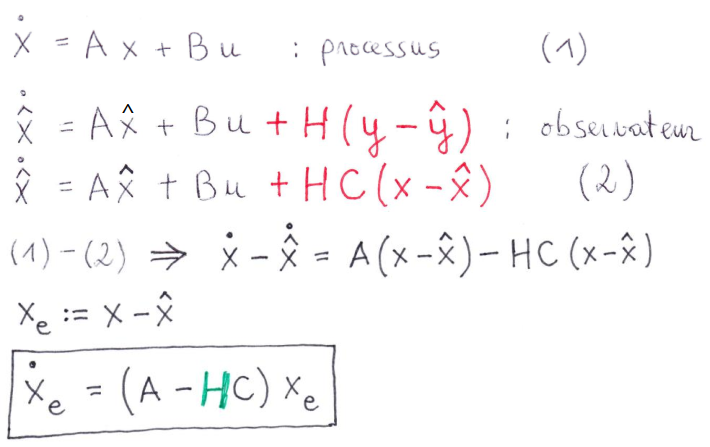 ẋ = A x + B u : processus (1)
x̂̇ = Ax̂ + Bu + H(y − ŷ) : observateur
x̂̇ = Ax̂ + Bu + HC(x − x̂) (2)
(1) − (2) ⇒ ẋ − x̂̇ = A(x − x̂) − HC(x − x̂)
xₑ := x − x̂
ẋₑ = (A − HC) xₑ